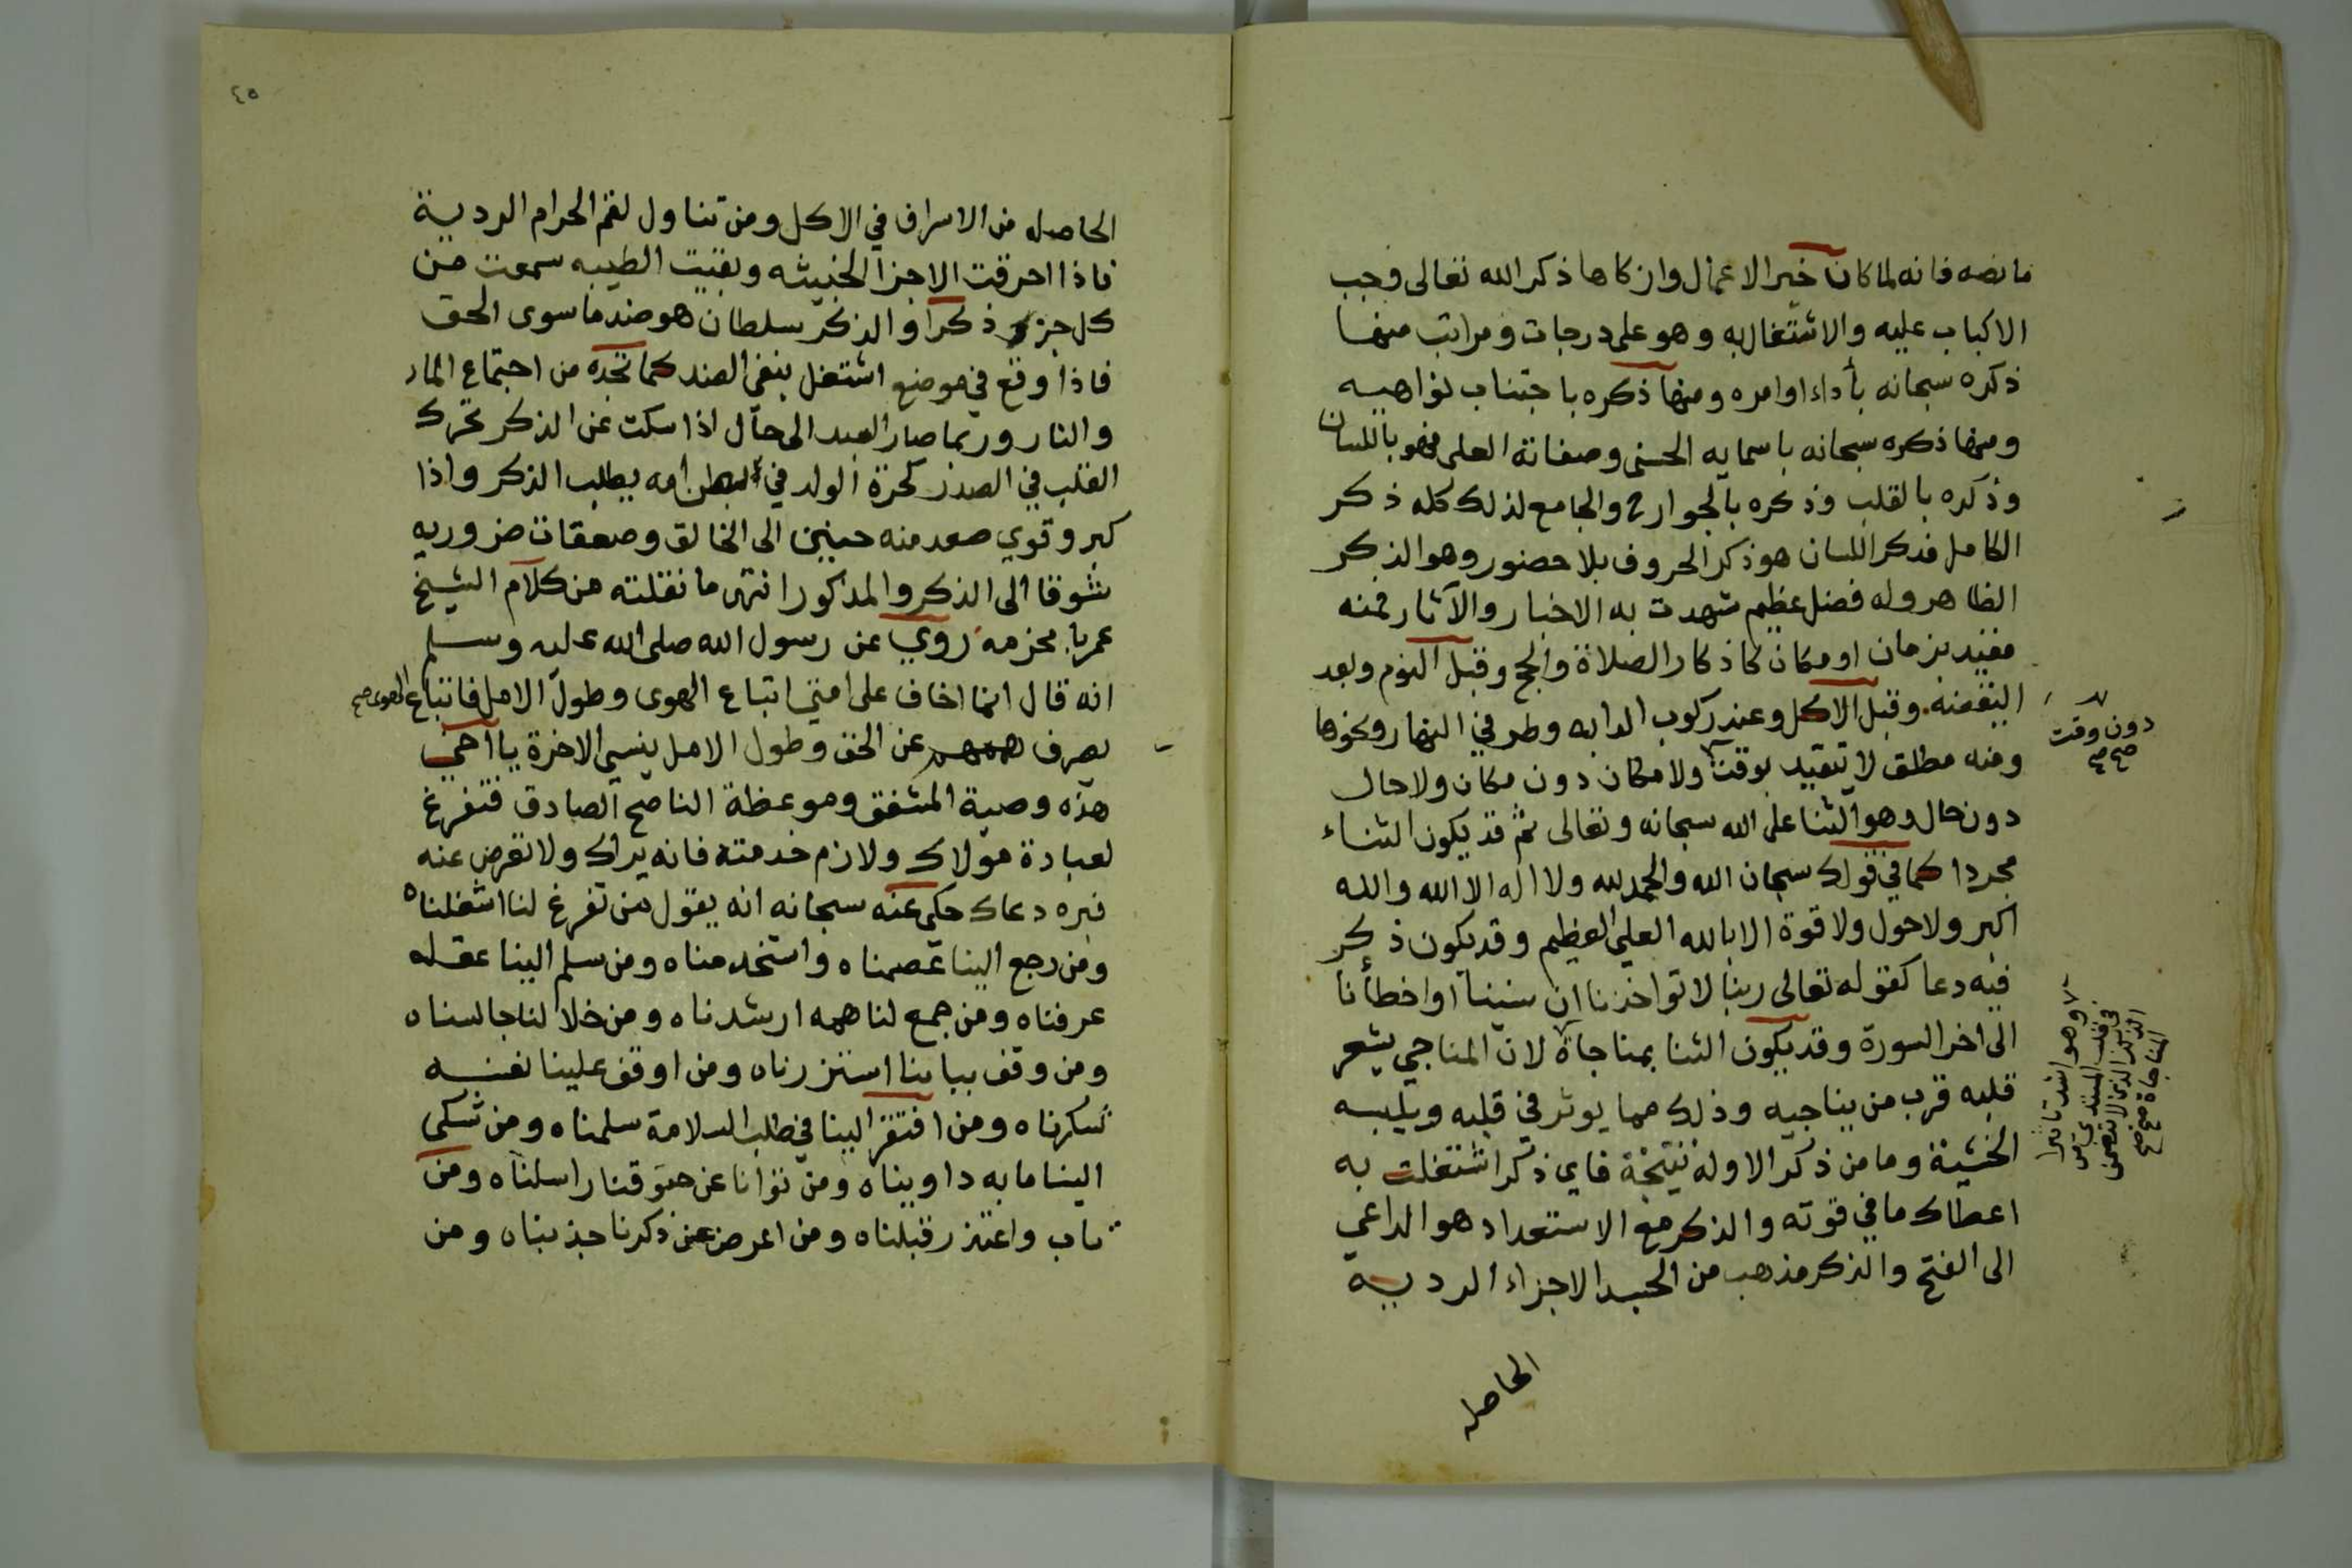 ما نصه فانه لما كان خير الاعمال وازكاها ذكر الله تعالى وجب
الاكباب عليه والاشتغال به وهو على درجات ومراتب منها
ذكره سبحانه بأداء اوامره ومنها ذكره باجتناب نواهيه
ومنها ذكره سبحانه باسمايه الحسنى وصفاته العلى فهو باللسان
وذكره بالقلب وذكره بالجوارح والجامع لذلك كله ذكر
الكامل فذكر اللسان هو ذكر الحروف بلا حضور وهو الذكر
الظاهر وله فضل عظيم شهدت به الاخبار والآثار فمنه
مقيد بزمان او مكان كاذكار الصلاة والحج وقبل النوم وبعد
اليقضه وقبل الاكل وعند ركوب الدابه وطرفي النهار ونحوها
ومنه مطلق لا يتقيد بوقت ولا مكان دون مكان ولا حال
دون وقت
صح
دون حال وهو الثنا على الله سبحانه وتعالى ثم قد يكون الثناء
مجردا كما في قولك سبحان الله والحمد لله ولا اله الا الله والله
اكبر ولا حول ولا قوة الا بالله العلي العظيم وقد يكون ذكر
فيه دعا كقوله تعالى ربنا لا تواخذنا ان نسينا او اخطأنا
الى اخر السورة وقد يكون الثنا بمناجاة لان المناجي يشعر
وهو اشد تاثيرا
في قلب المبتدي من
الذكر الذي لا يتضمن
المناجاة صح
قلبه قرب من يناجيه وذلك مما يوثر في قلبه ويلبسه
الخشية وما من ذكر الا وله نتيجة فاي ذكر اشتغلت به
اعطاك ما في قوته والذكر مع الاستعداد هو الداعي
الى الفتح والذكر مذهب من الجسد الاجزاء الرديـة
الحاصله
٤٥
الحاصله من الاسراف في الاكل ومن تناول لقم الحرام الردية
فاذا احرقت الاجزا الخبيثه وبقيت الطيبه سمعت من
كل جزء ذكرا والذكر سلطان هو ضد ما سوى الحق
فاذا وقع في موضع اشتغل بنفي الضد كما تجده من اجتماع الماء
والنار وربما صار العبد الى حال اذا سكت عن الذكر تحرك
القلب في الصدر كحركة الولد في بطن امه يطلب الذكر واذا
كبر وقوي صعد منه حنين الى الخالق وصعقات ضروريه
شوقا الى الذكر والمذكور انتهى ما نقلته من كلام الشيخ
عمر با مخزمه روي عن رسول الله صلى الله عليه وسلم
انه قال انما اخاف على امتي اتباع الهوى وطول الامل فاتباع الهوى صح
يصرف عن الحق وطول الامل ينسي الاخرة يا اخي
هذه وصية المشفق وموعظة الناصح الصادق فتفرغ
لعبادة مولاك ولازم خدمته فانه يراك ولا تعرض عنه
فبره دعاك حكى عنه سبحانه انه يقول من تفرغ لنا اشغلناه
ومن رجع الينا عصمناه واستخدمناه ومن سلم الينا عقله
عرفناه ومن جمع لنا همه ارشدناه ومن خلا لنا جالسناه
ومن وقف ببابنا استزرناه ومن اوقف علينا نفسه
شكرناه ومن افتقر الينا في طلب السلامة سلمناه ومن شكى
الينا ما به داويناه ومن توانا عن حقوقنا راسلناه ومن
تاب واعتذر قبلناه ومن اعرض عن ذكرنا جذبناه ومن